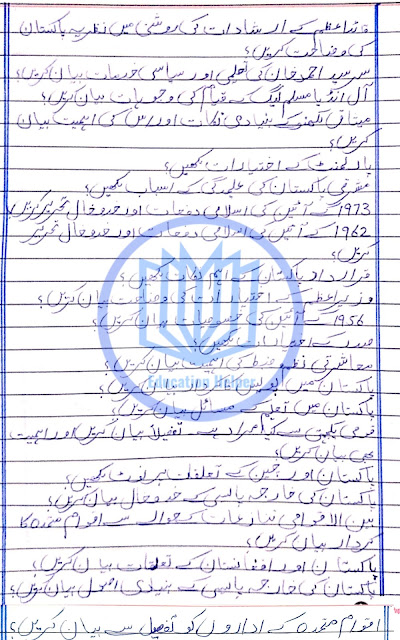 قائداعظم کے ارشادات کی روشنی میں نظریہ پاکستان
کی وضاحت کریں؟
سرسید احمد خان کی تعلیمی اور سیاسی خدمات بیان کریں؟
آل انڈیا مسلم لیگ کے قیام کی وجوہات بیان کریں؟
میثاق لکھنو کے بنیادی نکات اور اس کی اہمیت بیان
کریں؟
پارلیمنٹ کے اختیارات لکھیں؟
مشرقی پاکستان کی علیحدگی کے اسباب لکھیں؟
1973 کے آئین کی اسلامی دفعات اور خدوخال تحریر کریں؟
1962 کے آئین کی اسلامی دفعات اور خدوخال تحریر
کریں؟
قرارداد پاکستان کے اہم نکات لکھیں؟
وزیراعظم کے اختیارات کی وضاحت بیان کریں؟
1956 کے آئین کی خصوصیات بیان کریں؟
صدر کے اختیارات لکھیں؟
معاشرتی نظم و ضبط کی اہمیت بیان کریں؟
پاکستان میں بیان کریں؟
پاکستان میں تعلیم کے مسائل بیان کریں؟
قومی یکجہتی سے کیا مراد ہے تفصیلاً بیان کریں اور اہمیت
بھی بیان کریں؟
پاکستان اور چین کے تعلقات پر نوٹ لکھیں؟
پاکستان کی خارجہ پالیسی کے خدوخال بیان کریں؟
بین الاقوامی تنازعات کے حوالے سے اقوام متحدہ کا
کردار بیان کریں؟
پاکستان اور افغانستان کے تعلقات بیان کریں؟
پاکستان کی خارجہ پالیسی کے بنیادی اصول بیان کریں؟
اقوام متحدہ کے اداروں کو تفصیل سے بیان کریں؟
Education Helper